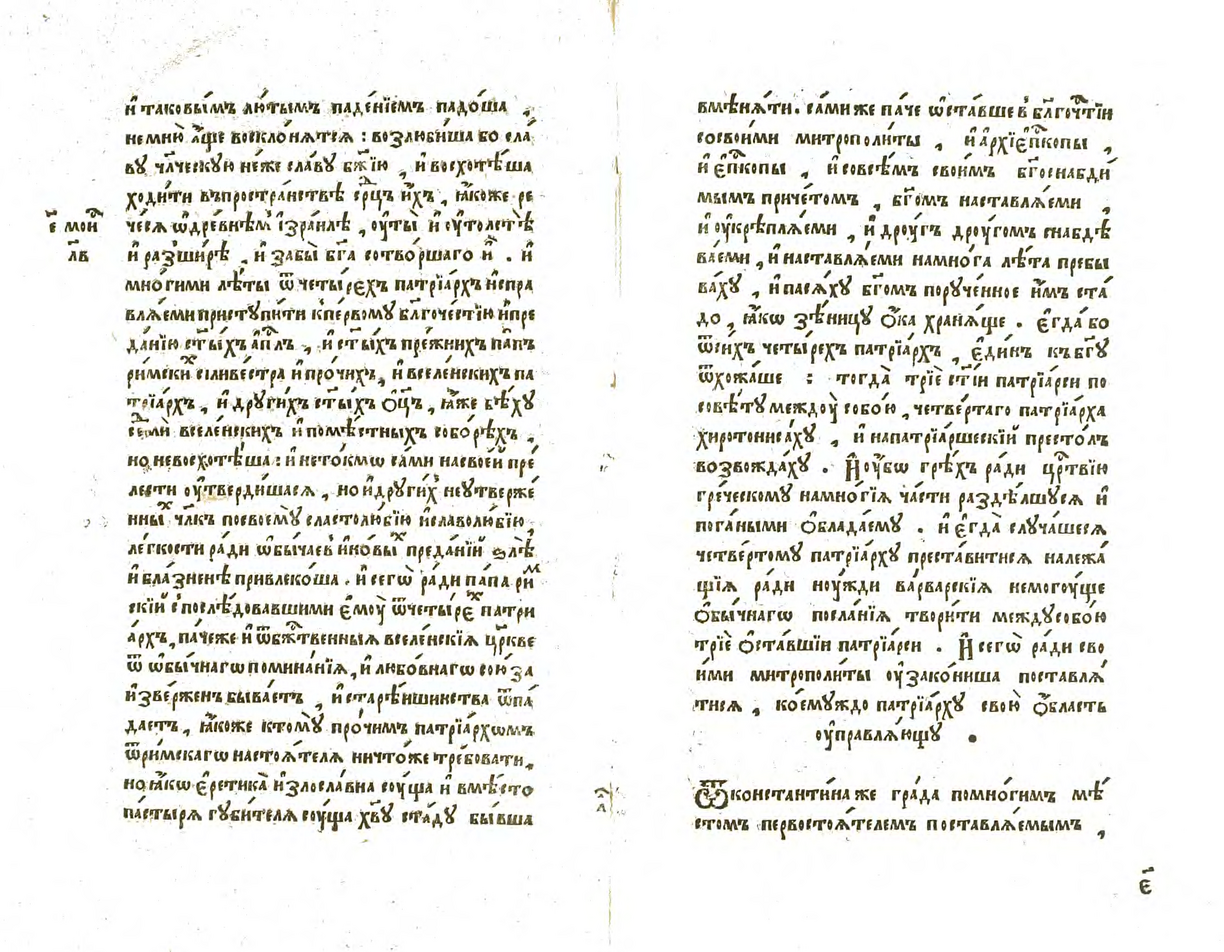 и҆ таковы́мъ лю́тымъ паде́нїемъ падо́ша ,
не мню̀ а҆́ще восклоня́тся : возлюби́ша бо сла́
вꙋ чл҃ческꙋю не́же сла́вꙋ бж҃їю , и҆ восхотѣ́ша
ходи́ти въпростра́нствѣ срⷣцъ и҆́хъ , ꙗ҆́коже ре
че́ся ѡ҆дре́внѣмъ і҆зра́илѣ , ᲂу҆ты̀ и҆ ᲂу҆толстѣ̀
и҆ разширѐ , и҆ забы̀ бг҃а сотво́ршаго и҆̀ . и҆
є҃ мон
лв҃
мно́гими лѣ́ты ѿ четы́рехъ патрїа́рхъ и҆спра
вля́еми пристꙋпи́ти кпе́рвомꙋ бл҃гоче́стїю и҆пре
да́нїю ст҃ы́хъ а҆пл҃ъ , и҆ ст҃ы́хъ пре́жнихъ па́пъ
ри́мскиⷯ сіливе́стра и҆про́чихъ , и҆ вселе́нскихъ па
трїа́рхъ , и҆ дрꙋги́хъ ст҃ы́хъ ѻ҆ц҃ъ , ꙗ҆́же бѣ́хꙋ
седмѝ вселе́нскихъ и҆помѣ́стныхъ собо́рѣхъ ,
но невосхотѣ́ша : и҆ нето́кмѡ са́ми насвое́й пре́
лести ᲂу҆тверди́шася , но и҆ дрꙋги́хъ неᲂу҆тверже́
нныⷯ чл҃къ посвоемꙋ̀ сластолю́бїю и҆славолю́бїю
ле́гкости ра́ди ѡ҆бы́чаев и҆новыⷯ преда́нїй ѕлѣ̀
и҆ бла́зненѣ привлеко́ша . и҆ сегѡ̀ ра́ди па́па риⷨ
скїй с̾послѣ́довавшими є҆мꙋ̀ ѿ четы́реⷯ патри
а́рхъ , па́чеже и҆ ѿбж҃е́ственныя вселе́нскїя цр҃кве
ѿ ѡ҆бы́чнагѡ помина́нїя , и҆ любо́внагѡ сою́за
и҆зве́рженъ быва́етъ , и҆ старѣ́ишинства ѿпа́
даетъ , ꙗ҆́коже ктомꙋ̀ про́чимъ патрїа́рхѡмъ
ѿри́мскагѡ настоя́теля ничто́же тре́бовати ,
но ꙗ҆́кѡ є҆ретика̀ и҆злосла́вна сꙋ́ща и҆ вмѣ́сто
па́стыря гꙋби́теля сꙋ́ща хв҃ꙋ ста́дꙋ бы́вша
вмѣня́ти . са́ми же па́че ѡ҆ста́вше в̾ бл҃гочⷭ҇тїи
сосвои́ми митрополи́ты , и҆ а҆рхїепⷭ҇копы ,
и҆ є҆пⷭ҇копы , и҆ совсѣ́мъ свои́мъ бг҃оснабди́
мымъ при́четомъ , бг҃омъ наставля́еми ,
и҆ ᲂу҆крѣпля́еми , и҆ дрꙋ́гъ дрꙋ́гомъ снабдѣ
ва́еми , и҆ наставля́еми намно́га лѣ́та пребы
ва́хꙋ , и҆ пася́хꙋ бг҃омъ порꙋ́ченное и҆̀мъ ста́
до , ꙗ҆́кѡ зѣ́ницꙋ ѻ҆́ка храня́ще . є҆гда́ бо
ѿси́хъ четы́рехъ патрїа́рхъ , є҆ди́нъ къ бг҃ꙋ
ѿхожа́ше : тогда̀ трїѐ ст҃і́и патрїа́рси по
совѣ́тꙋ междꙋ̀ собо́ю , четве́ртаго патрїа́рха
хиротониса́хꙋ , и҆ напатрїа́ршескїй престо́лъ
возвожда́хꙋ . И҆ ᲂу҆́бѡ грѣ́хъ ра́ди црⷭ҇твїю
гре́ческомꙋ намно́гїя ча́сти раздѣ́лшꙋся и҆
пога́ными ѻ҆блада́емꙋ . и҆ є҆гда̀ слꙋча́шеся
четве́ртомꙋ патрїа́рхꙋ преста́витися належа́
щїя ра́ди нꙋ́жди ва́рварскїя немогꙋ́ще
ѻ҆бы́чнагѡ посла́нїя твори́ти междꙋсобо́ю
трїѐ ѻ҆ста́вшїи патрїа́рси . И҆ сегѡ̀ ра́ди сво
и́ми митрополи́ты ᲂу҆зако́ниша поставля́
тися , коемꙋ́ждо патрїа́рхꙋ свою̀ ѻ҆́бласть
ᲂу҆правля́ющꙋ .
Ѿконстанти́на же гра́да помно́гимъ мѣ́
стомъ первостоя́телемъ поставля́емымъ ,
є҃